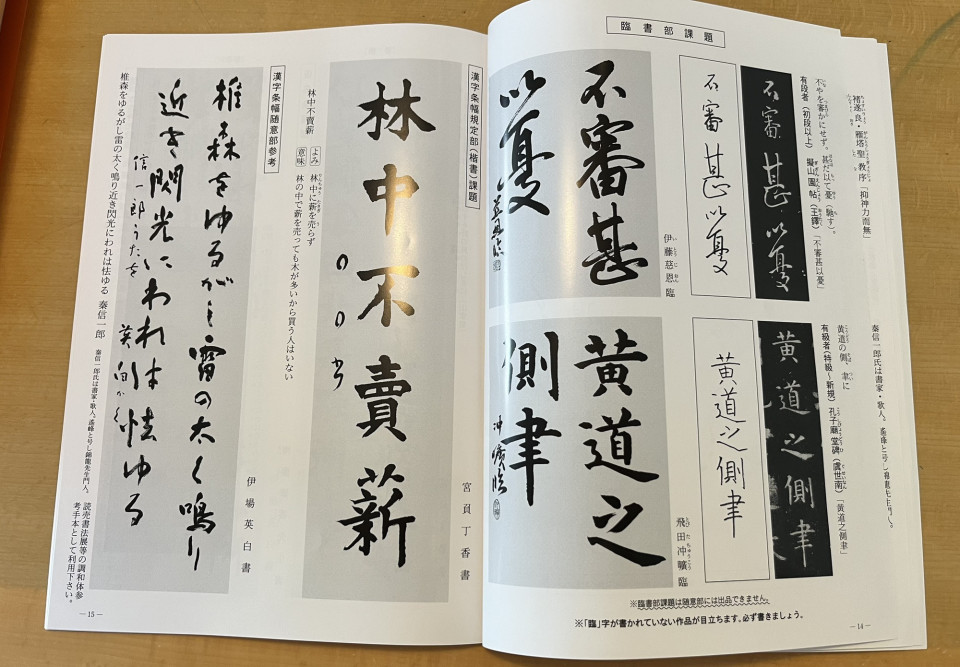 臨書部課題
褚遂良・雁塔聖教序「抑神力而無」
不やを審かにせず。甚だ以て憂(馳す)。
有段者(初段以上) 擬山園帖(王鐸)「不審甚以憂」
不審甚以憂
不審甚以憂
不審甚
以憂
伊藤慈恩臨
秦信一郎氏は書家・歌人。
黄道の側、聿に
有級者(特級~新規) 孔子廟堂碑(虞世南)「黄道之側聿」
黄道之側聿
黄道之側聿
黄道之
側聿
飛田冲曠臨
※臨書部課題は随意部には出品できません。
※「臨」字が書かれていない作品が目立ちます。必ず書きましょう。
―14―
漢字条幅規定部(楷書)課題
林中不賣薪
宮貢丁香書
林中不賣薪
よみ 林中に薪を売らず
意味 林の中で薪を売っても木が多いから買う人はいない
漢字条幅随意部参考
伊場英白書
椎森をゆるがし雷の太く鳴り
近き閃光にわれは怯ゆる
信一郎うたを
英白かく
椎森をゆるがし雷の太く鳴り近き閃光にわれは怯ゆる 秦信一郎
秦信一郎氏は書家・歌人。
読売書法展等の調和体参
考手本として利用下さい。
―15―